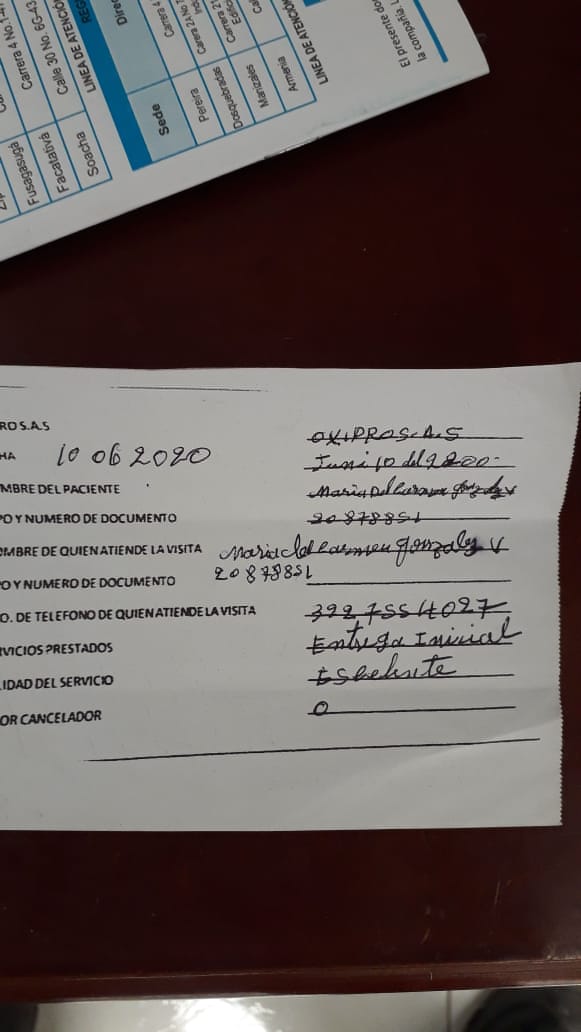 Zip
Fusagasugá
Carrera 4 No.
Facatativá
Calle 30 No. 6G-43
Soacha
LINEA DE ATENCIÓN
REG
Sede
Direc
Pereira
Carrera 4
Dosquebradas
Carrera 2A No.
Indu
Manizales
Carrera 21
Edificio
Armenia
Cal
LINEA DE ATENCIÓN
El presente do
la compañía. L
RO S.A.S OXIPRO S.A.S
HA 10 06 2020 Juni 10 del 2200
MBRE DEL PACIENTE Maria Del Carmen Gonzalez V
PO Y NUMERO DE DOCUMENTO 20878851
OMBRE DE QUIEN ATIENDE LA VISITA Maria del Carmen Gonzalez V
PO Y NUMERO DE DOCUMENTO 20878851
O. DE TELEFONO DE QUIEN ATIENDE LA VISITA 3227554027
RVICIOS PRESTADOS Entrega Inicial
LIDAD DEL SERVICIO
OR CANCELADOR 0